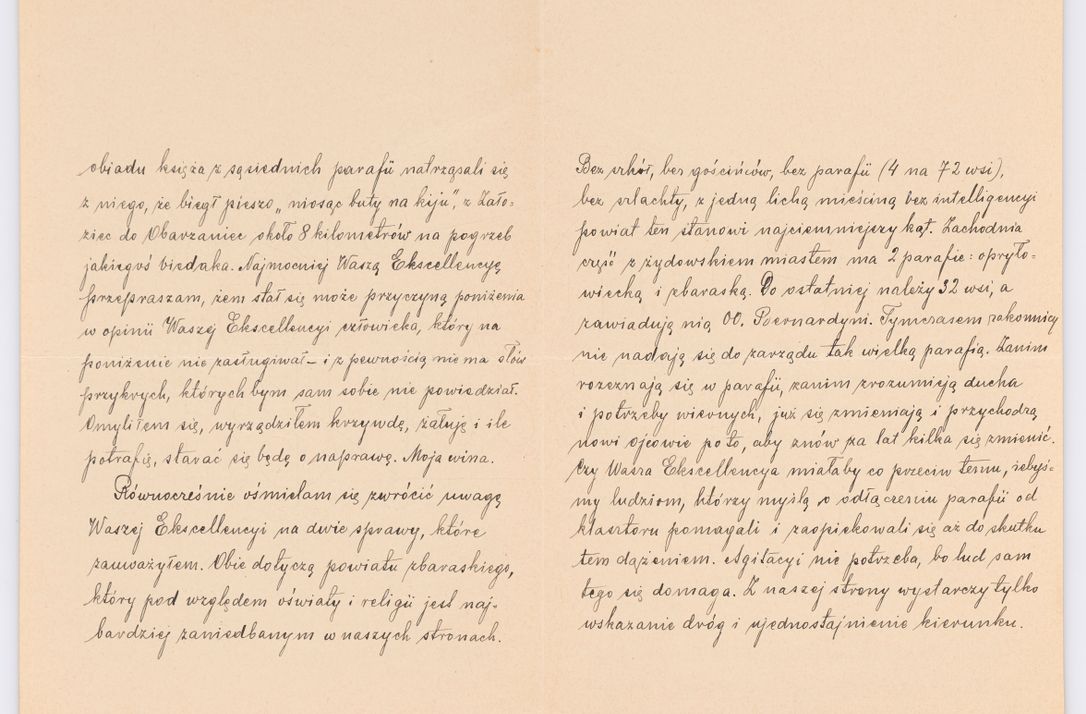 obiadu księża z sąsiednich parafii natrząsali się
z niego, że biegł pieszo „niosąc buty na kiju", z Zało-
ziec do Obarzaniec około 8 kilometrów na pogrzeb
jakiegoś biedaka. Najmocniej Waszą Ekscellencyę
przepraszam, żem stał się może przyczyną poniżenia
w opinii Waszej Ekscellencyi człowieka, który na
poniżenie nie zasługiwał – i z pewnością nie ma słów
przykrych, których bym sam sobie nie powiedział.
Omyliłem się, wyrządziłem krzywdę, żałuję i ile
potrafię, starać się będę o naprawę. Moja wina.
Równocześnie ośmielam się zwrócić uwagę
Waszej Ekscellencyi na dwie sprawy, które
zauważyłem. Obie dotyczą powiatu zbaraskiego,
który pod względem oświaty i religii jest naj-
bardziej zaniedbanym w naszych stronach.
Bez szkół, bez gościńców, bez parafii (4 na 72 wsi),
bez szlachty, z jedną lichą mieściną bez intelligencyi
powiat ten stanowi najciemniejszy kąt. Zachodnia
część z żydowskiem miastem ma 2 parafie: opryło-
wiecką i zbaraską. Do ostatniej należy 32 wsi, a
zawiadują nią OO. Bernardyni. Tymczasem zakonnicy
nie nadają się do zarządu tak wielką parafią. Zanim
rozeznają się w parafii, zanim zrozumieją ducha
i potrzeby wiernych, już się zmieniają i przychodzą
nowi ojcowie po to, aby znów za lat kilka się zmienić.
Czy Wasza Ekscellencya miałaby co przeciw temu, żebyś-
my ludziom, którzy myślą o odłączeniu parafii od
klasztoru pomagali i zaopiekowali się aż do skutku
tem dążeniem. Agitacyi nie potrzeba, bo lud sam
tego się domaga. Z naszej strony wystarczy tylko
wskazanie dróg i ujednostajnienie kierunku.